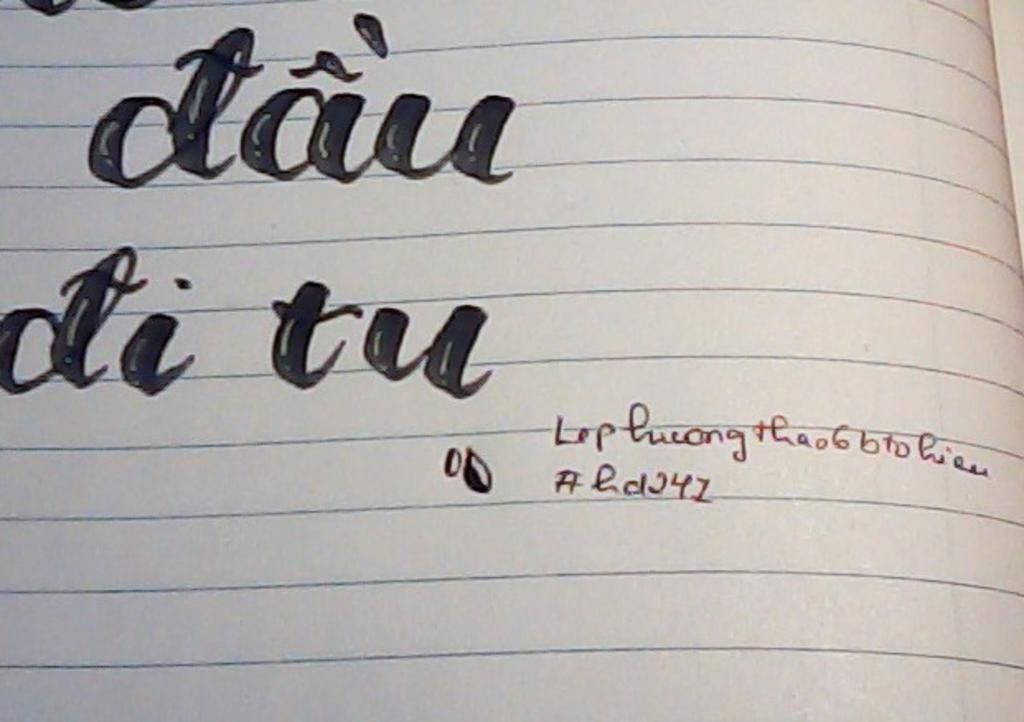 đầu
đi tu
Lephuongthao6btohieu
#hd247